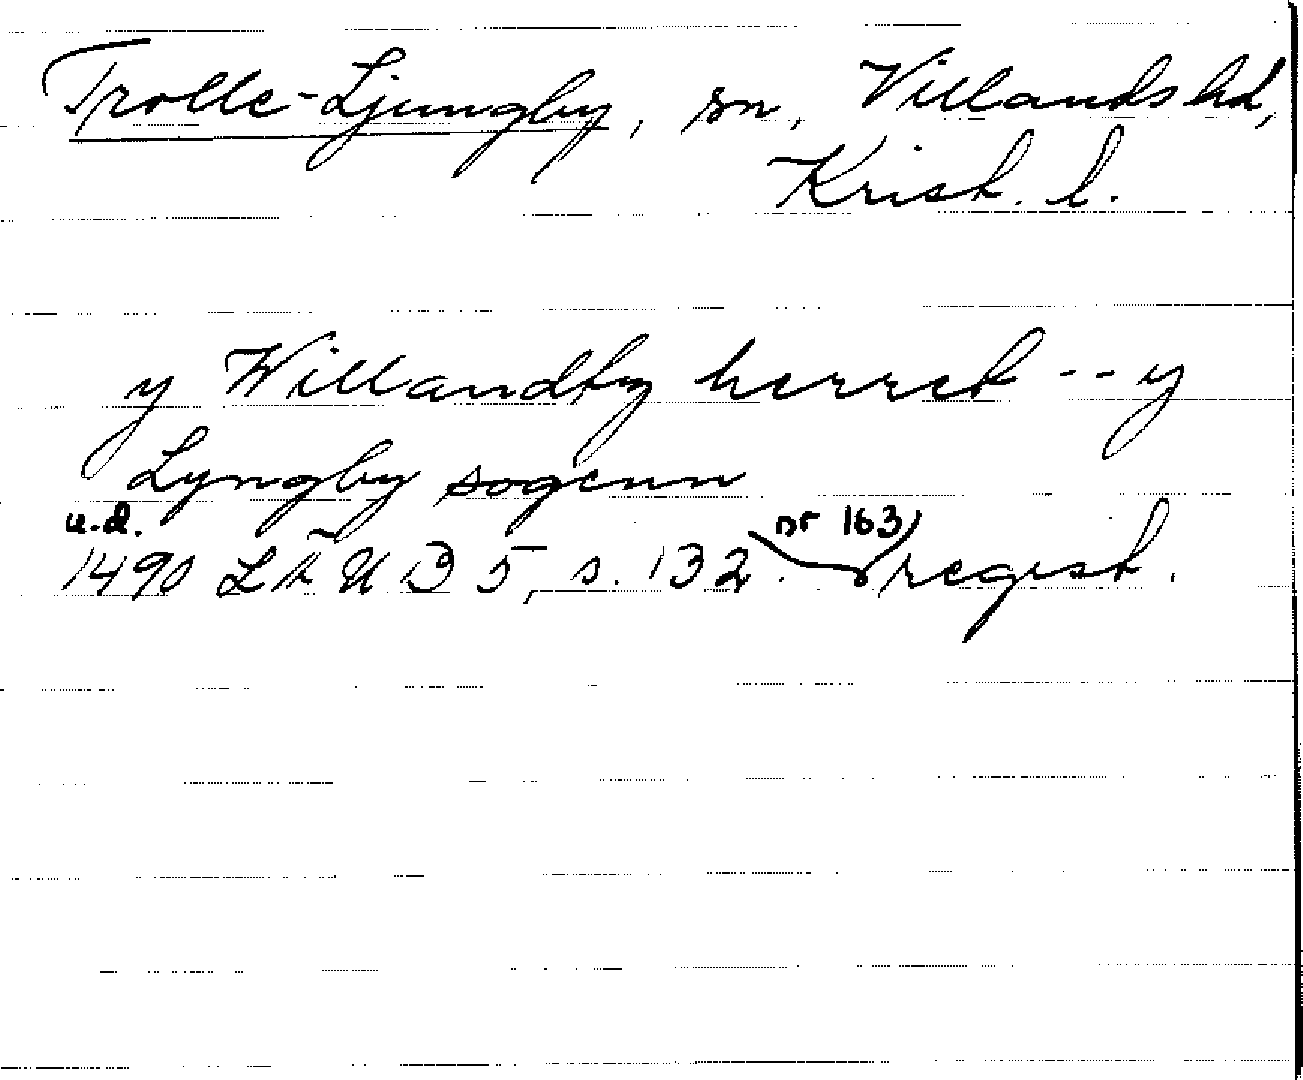 Trolle-Ljungby, sn, Villands hd,
Krist. l.
y Willandby herret -- y
Lyngby sogenn
u.d. nr 163
1490 LÄUB 5, s. 132. regist.